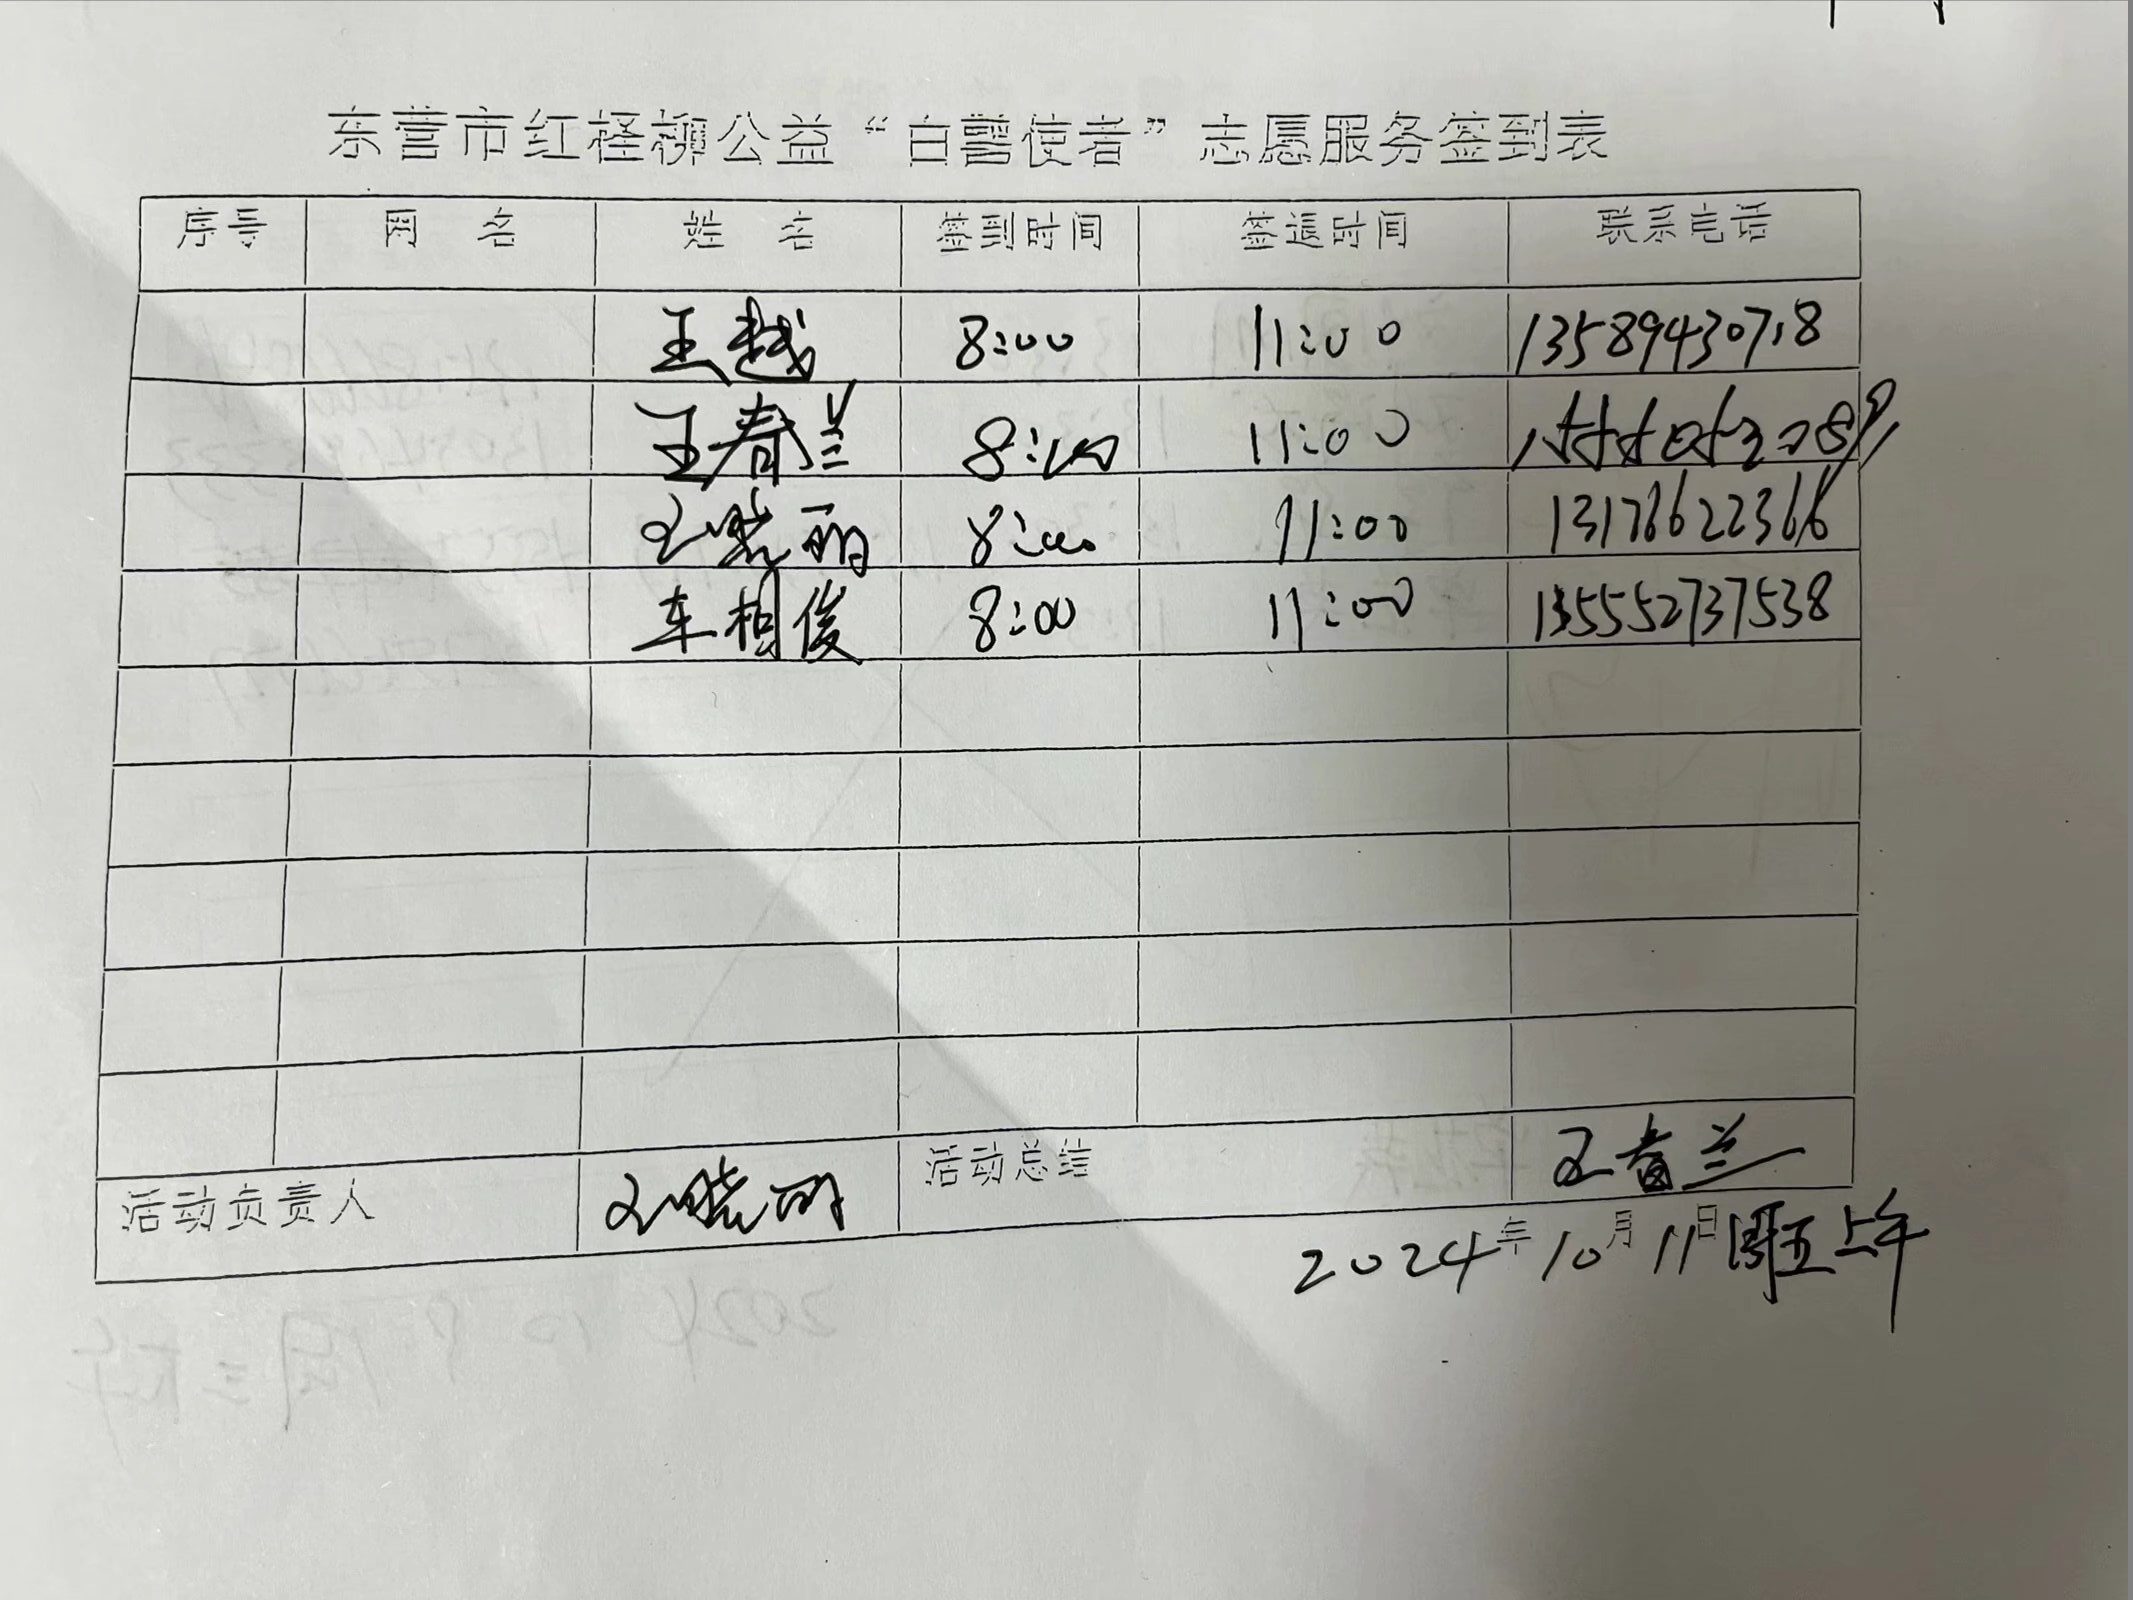 东营市红柽柳公益“白鹭使者”志愿服务签到表
序号 网 名 姓 名 签到时间 签退时间 联系电话
王越 8:00 11:00 13589430718
王春兰 8:00 11:00
王晓丽 8:00 11:00 13176622366
车相俊 8:00 11:00 135552737538
活动负责人 王晓丽 活动总结 王春兰
2024年10月11日周五上午